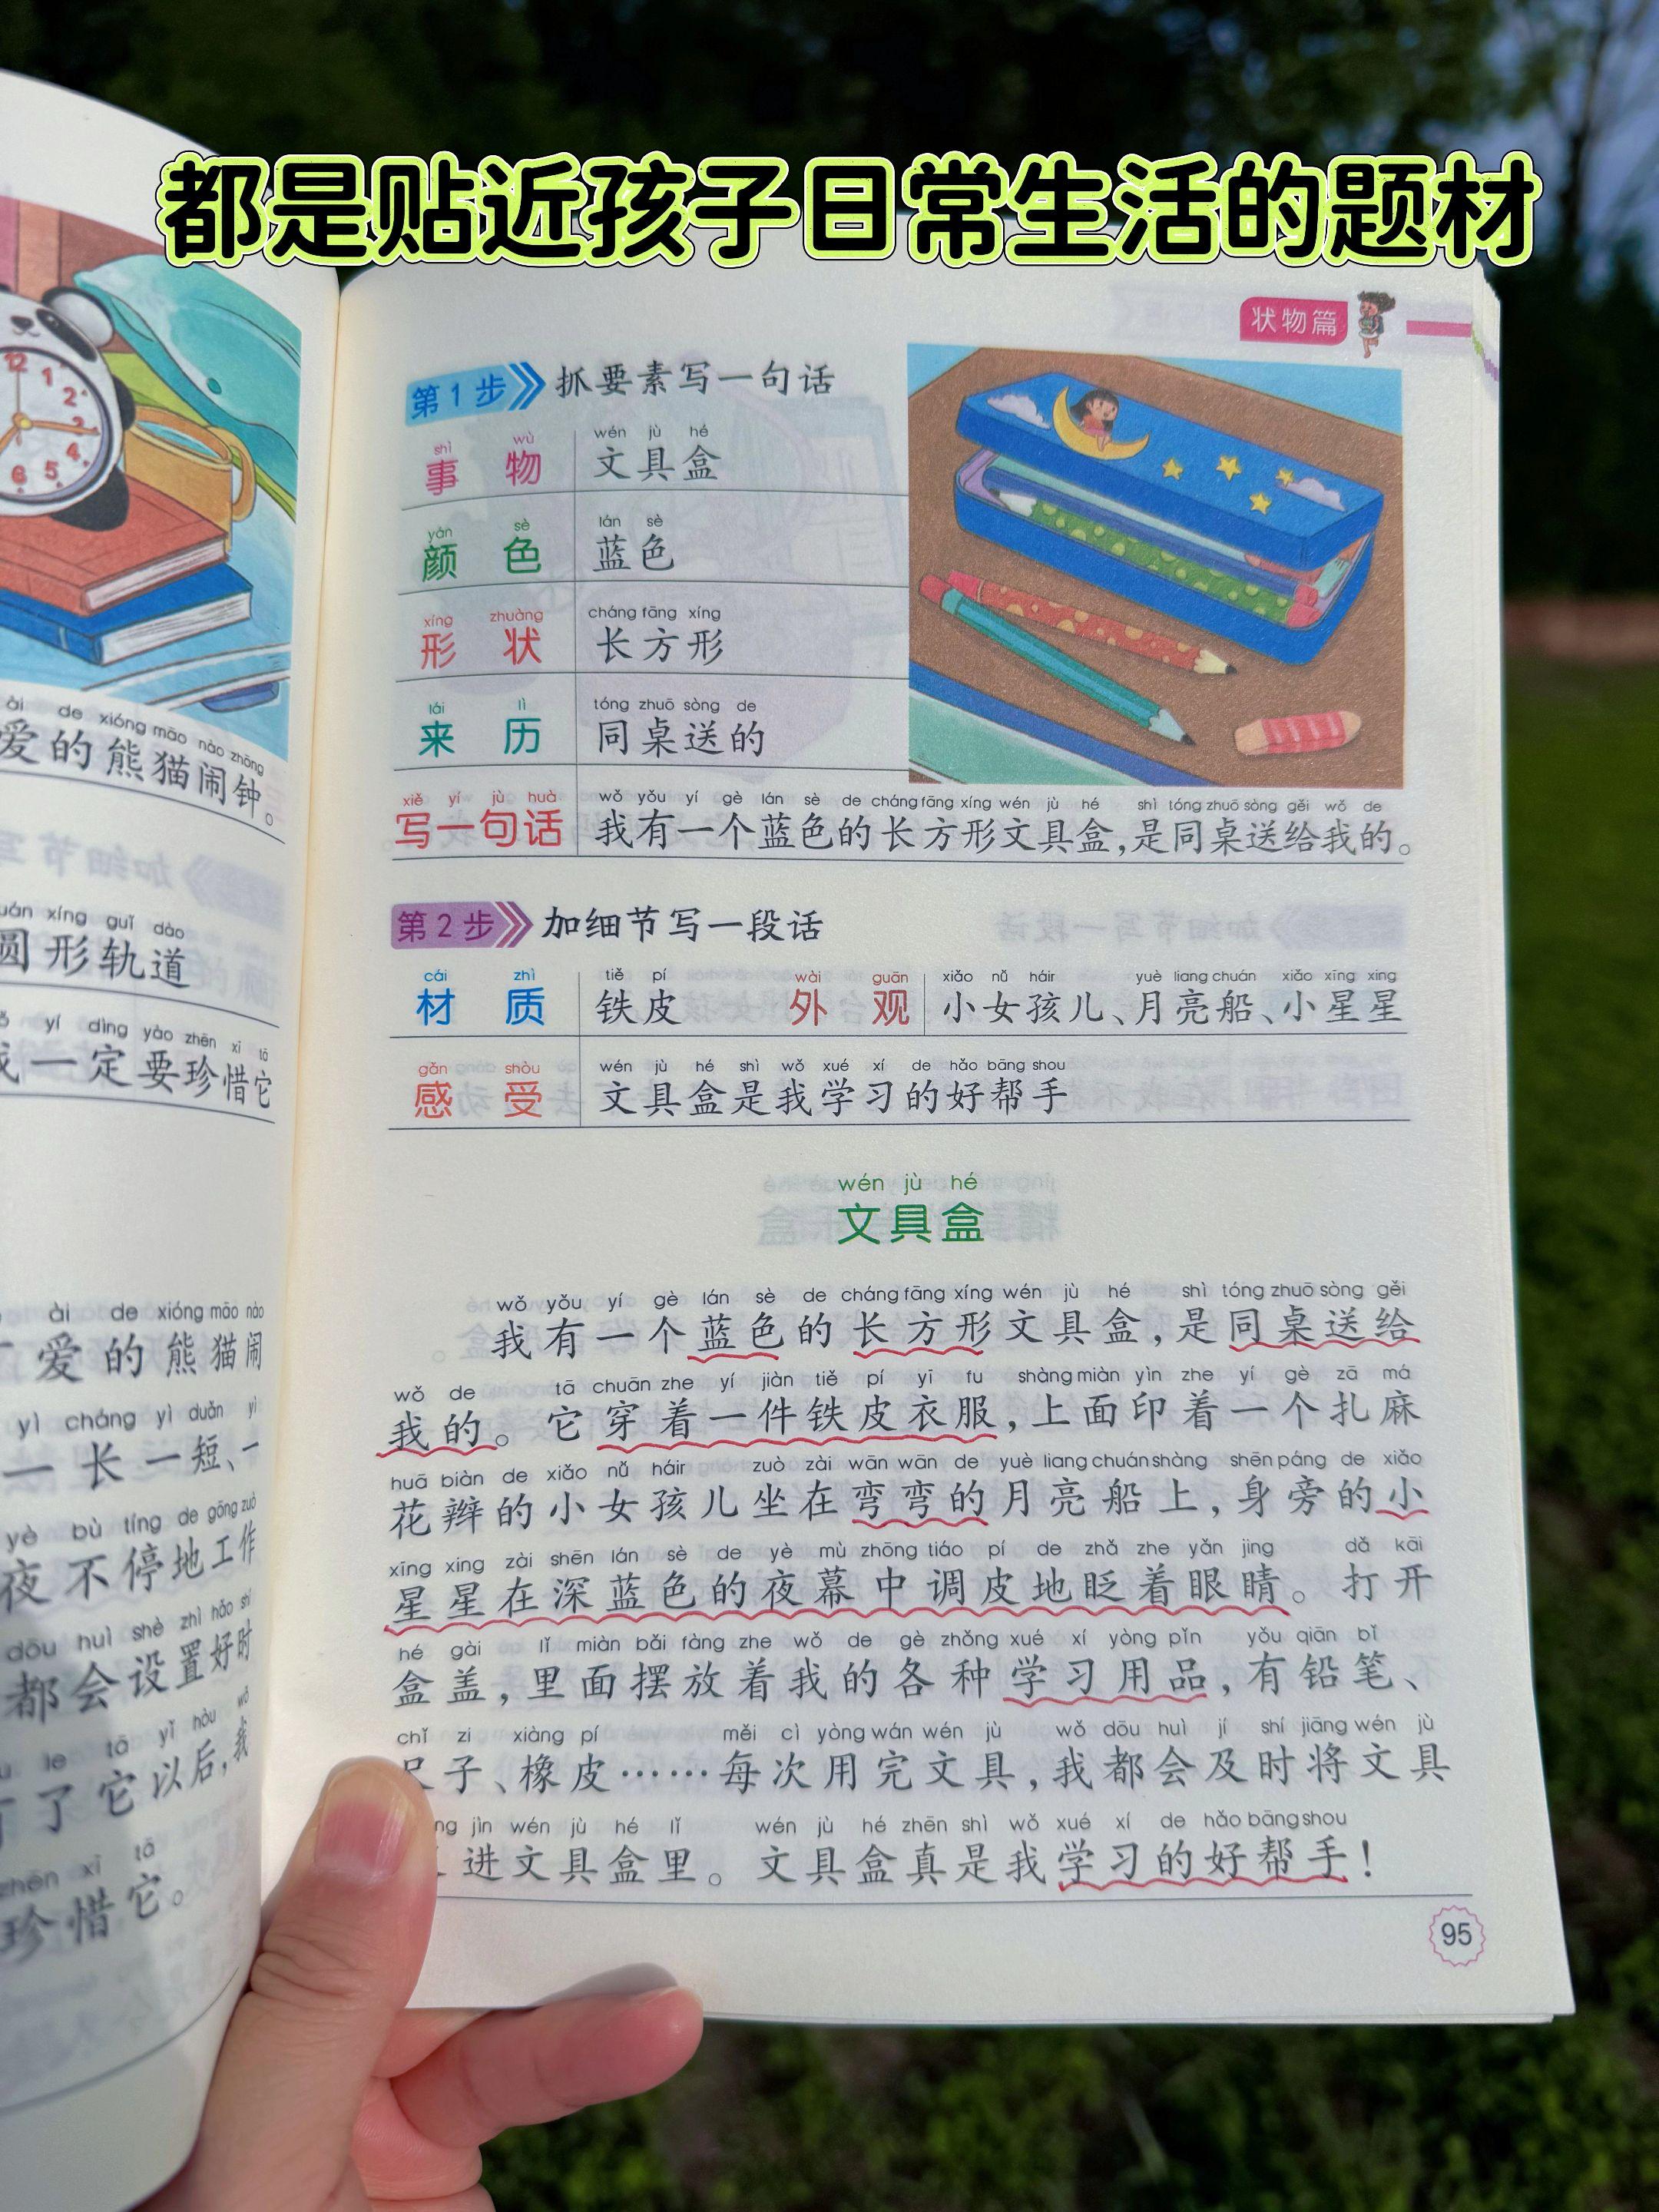 都是贴近孩子日常生活的题材
爱的熊猫闹钟。
圆形轨道
我一定要珍惜它
爱的熊猫闹
一长一短、一
夜不停地工作
都会设置好时
了它以后,我
珍惜它。
状物篇
第1步 抓要素写一句话
shì wù wén jù hé
事物 文具盒
yán sè lán sè
颜色 蓝色
xíng zhuàng cháng fāng xíng
形状 长方形
lái lì tóng zhuō sòng de
来历 同桌送的
xiě yí jù huà wǒ yǒu yí gè lán sè de cháng fāng xíng wén jù hé shì tóng zhuō sòng gěi wǒ de
写一句话 我有一个蓝色的长方形文具盒,是同桌送给我的。
第2步 加细节写一段话
cái zhì tiě pí wài guān xiǎo nǚ háir yuè liang chuán xiǎo xīng xing
材质 铁皮 外观 小女孩儿、月亮船、小星星
gǎn shòu wén jù hé shì wǒ xué xí de hǎo bāng shou
感受 文具盒是我学习的好帮手
wén jù hé
文具盒
wǒ yǒu yí gè lán sè de cháng fāng xíng wén jù hé shì tóng zhuō sòng gěi
我有一个蓝色的长方形文具盒,是同桌送给
wǒ de tā chuān zhe yí jiàn tiě pí yī fu shàng miàn yìn zhe yí gè zā má
我的。它穿着一件铁皮衣服,上面印着一个扎麻
huā biàn de xiǎo nǚ háir zuò zài wān wān de yuè liang chuán shàng shēn páng de xiǎo
花辫的小女孩儿坐在弯弯的月亮船上,身旁的小
xīng xing zài shēn lán sè de yè mù zhōng tiáo pí de zhǎ zhe yǎn jing dǎ kāi
星星在深蓝色的夜幕中调皮地眨着眼睛。打开
hé gài lǐ miàn bǎi fàng zhe wǒ de gè zhǒng xué xí yòng pǐn yǒu qiān bǐ
盒盖,里面摆放着我的各种学习用品,有铅笔、
chǐ zi xiàng pí měi cì yòng wán wén jù wǒ dōu huì jí shí jiāng wén jù
尺子、橡皮……每次用完文具,我都会及时将文具
jìn wén jù hé lǐ wén jù hé zhēn shì wǒ xué xí de hǎo bāng shou
进文具盒里。文具盒真是我学习的好帮手!
95